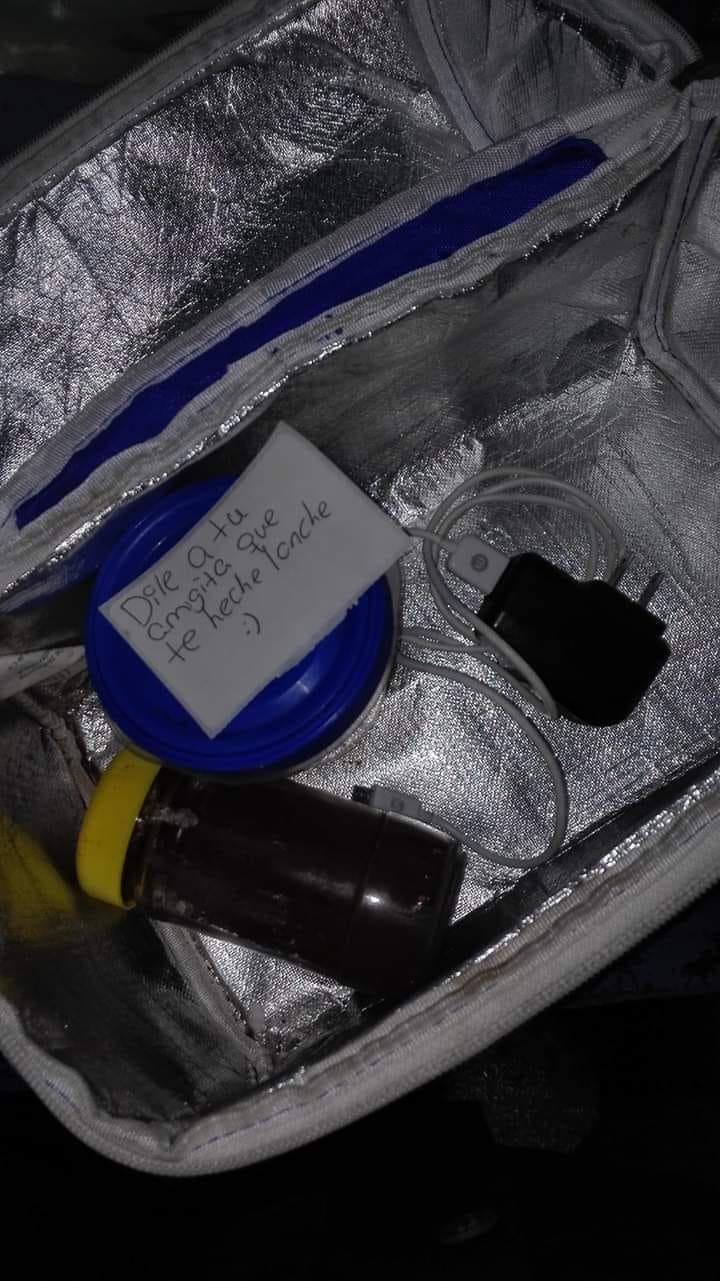 Dile a tu
amigita que
te heche lonche
:)